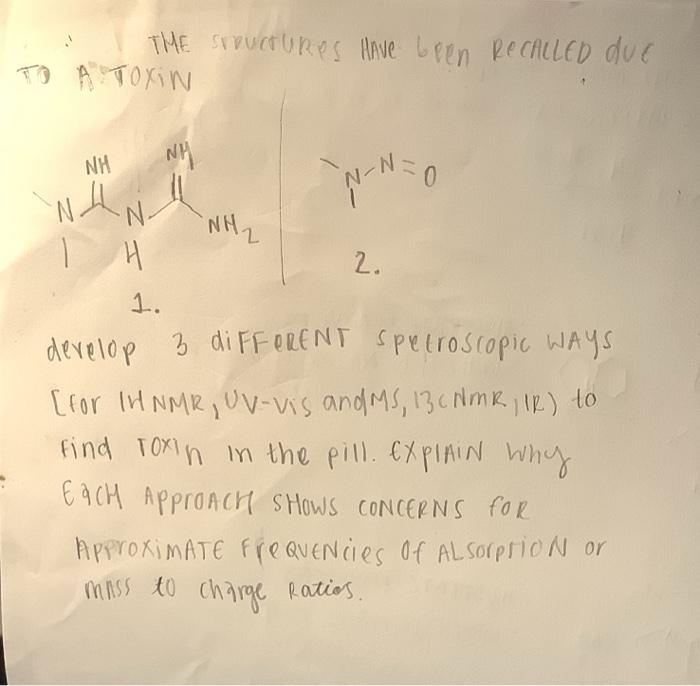 THE structures HAVE been RECALLED due
TO A TOXIN
NH NH
N N NH2
H
1.
N-N=O
2.
develop 3 diFFERENT spectroscopic WAYS
[for 1H NMR, UV-Vis and MS, 13C NMR, IR) to
find TOXIn in the pill. EXPLAIN why
EACH APPROACH SHOWS CONCERNS for
APPROXIMATE FREQUENCIES Of ALSORPTION or
mass to charge Ratios.